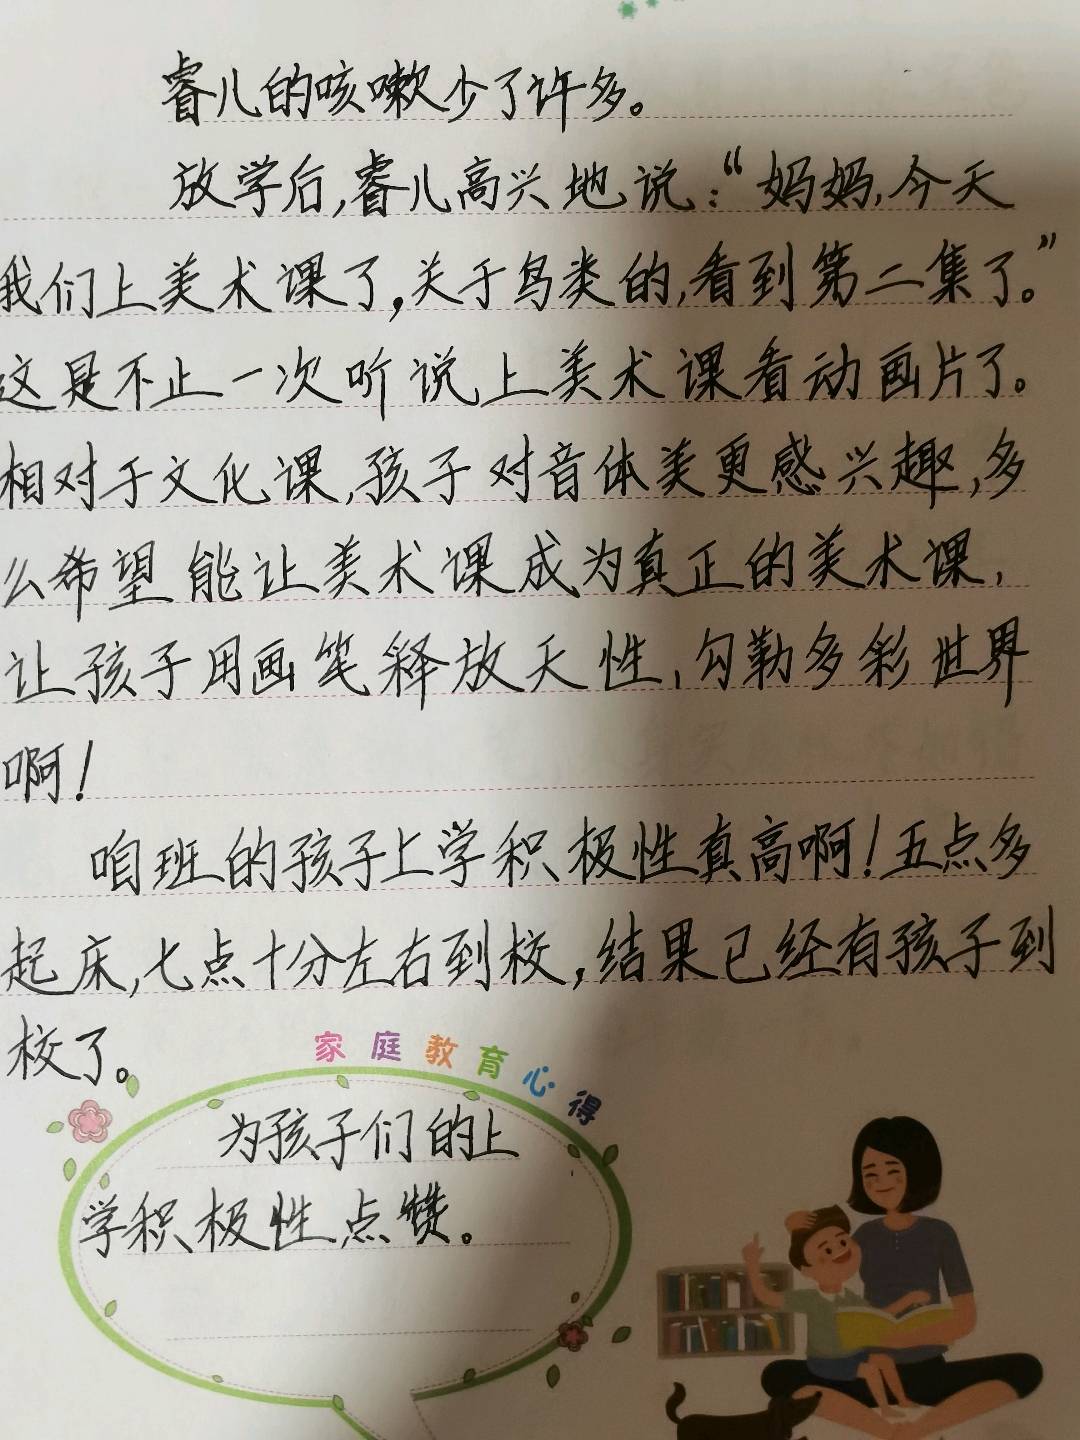 睿儿的咳嗽少了许多。
放学后,睿儿高兴地说:“妈妈,今天
我们上美术课了,关于鸟类的,看到第二集了。”
这是不止一次听说上美术课看动画片了。
相对于文化课,孩子对音体美更感兴趣,多
么希望能让美术课成为真正的美术课,
让孩子用画笔释放天性,勾勒多彩世界
啊!
咱班的孩子上学积极性真高啊!五点多
起床,七点十分左右到校,结果已经有孩子到
校了。
家庭教育心得
为孩子们的上
学积极性点赞。